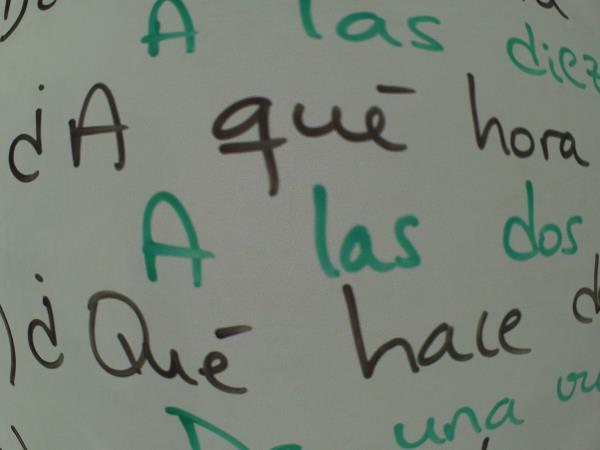 A las diez
¿A qué hora
A las dos
¿Qué hace
una